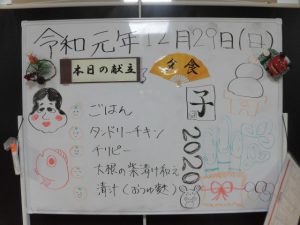 令和元年12月29日(日)
本日の献立
夕食
子
2020
ごはん
タンドリーチキン
チリビー
大根の柴漬け和え
清汁(おつゆ麩)